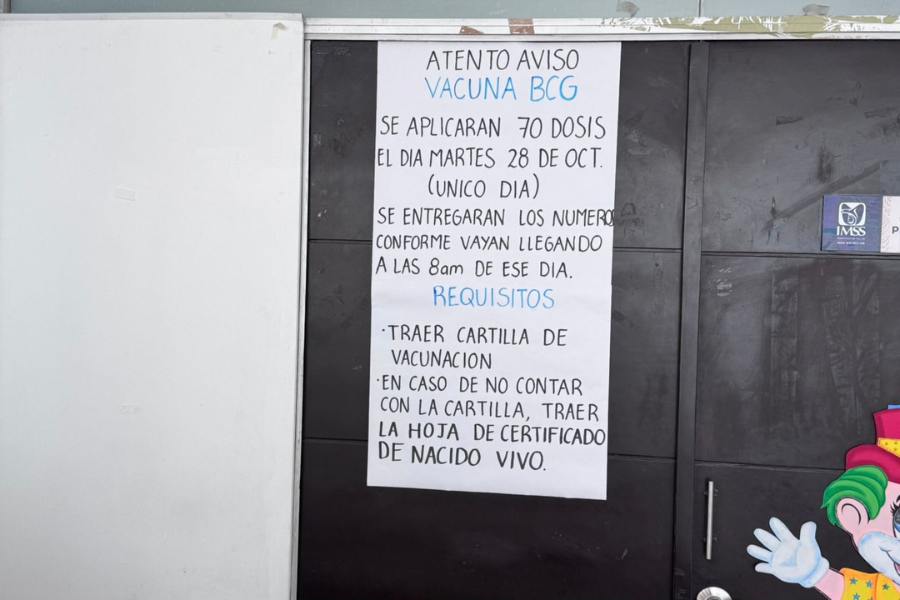 ATENTO AVISO
VACUNA BCG
SE APLICARAN 70 DOSIS
EL DIA MARTES 28 DE OCT.
(UNICO DIA)
SE ENTREGARAN LOS NUMERO
CONFORME VAYAN LLEGANDO
A LAS 8am DE ESE DIA.
REQUISITOS
·TRAER CARTILLA DE
VACUNACION
·EN CASO DE NO CONTAR
CON LA CARTILLA, TRAER
LA HOJA DE CERTIFICADO
DE NACIDO VIVO.
IMSS